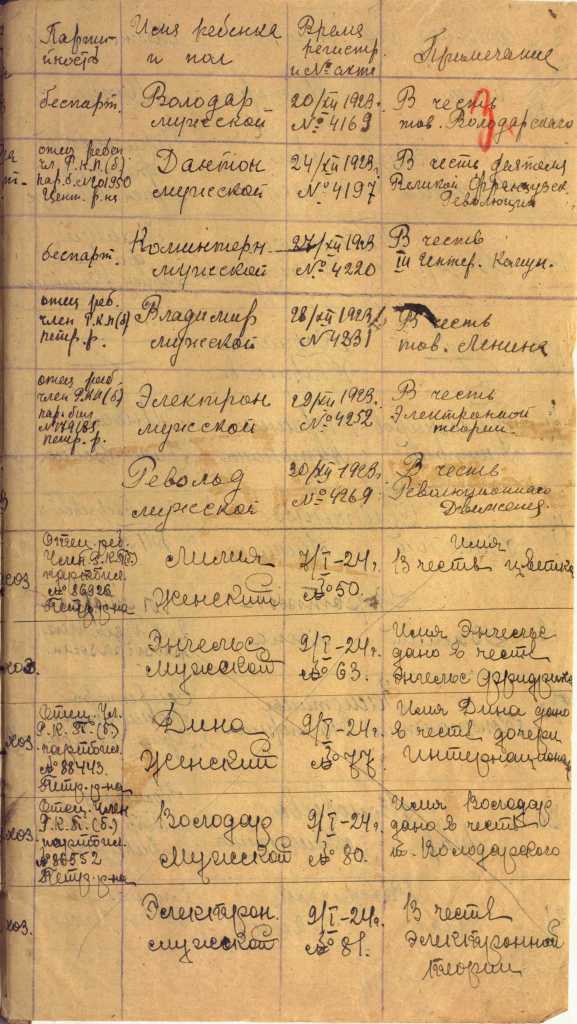 Партий-
йность
Имя ребенка
и пол
Время
регистр.
и № акта
Примечание
3
беспарт.
Володар
мужской
20/XII 1923г.
№ 4169
В честь
тов. Володарского
отец ребен.
чл. Р.К.П.(б)
пар.б. №201950
Центр. р-на
Дантон
мужской
24/XII 1923г.
№ 4197
В честь деятеля
Великой Французск.
Революции
беспарт.
Коминтерн
мужской
27/XII 1923
№ 4220
В честь
III Интер. Комун.
отец реб.
член Р.К.П(б)
петр. р.
Владимир
мужской
28/XII 1923г.
№ 4231
В честь
тов. Ленина
отец реб.
член Р.К.П(б)
пар. бил
петр. р.
Электрон
мужской
29/XII 1923г.
№ 4252
В честь
Электронной
теории.
Револьд
мужской
30/XII 1923г.
№ 4269
В честь
Революционного
Движения.
хоз.
Отец реб.
Член Р.К.П.
партбил.
№ 86926
Петр. р-на
Лилия
Женский
7/I-24г.
№ 50.
Имя
В честь цветка
хоз.
Энгельс
Мужской
9/I-24г.
№ 63.
Имя Энгельс
дано в честь
Энгельс Фридриха
хоз.
Отец Чл.
Р.К.П.(б.)
партбил.
№ 88443.
Петр. р-на
Дина
Женский
9/I-24г.
№ 77.
Имя Дина дано
в честь дочери
Интернационала
хоз.
Отец Член
Р.К.П.(б.)
партбил.
№ 86552
Петр. р-на
Володар
Мужской
9/I-24г.
№ 80.
Имя Володар
дано в честь
т. Володарского
хоз.
Электрон.
мужской
9/I-24г.
№ 81.
В честь
электронной
теории